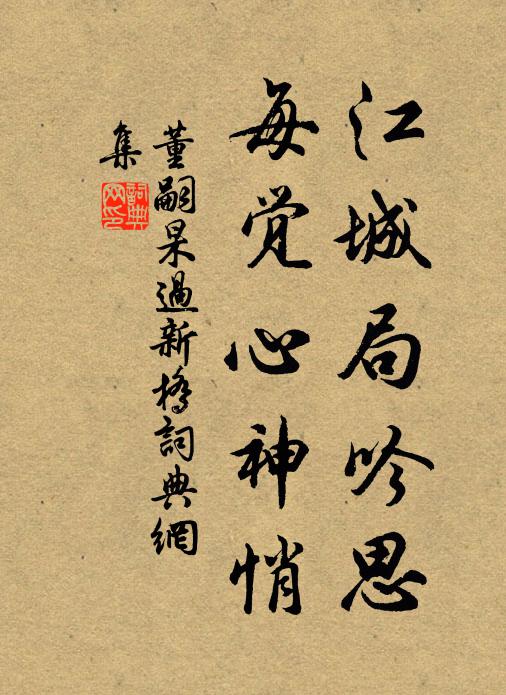 江城局吟思
每觉心神悄
董嗣杲過新橋詞典網
集
詞典網印